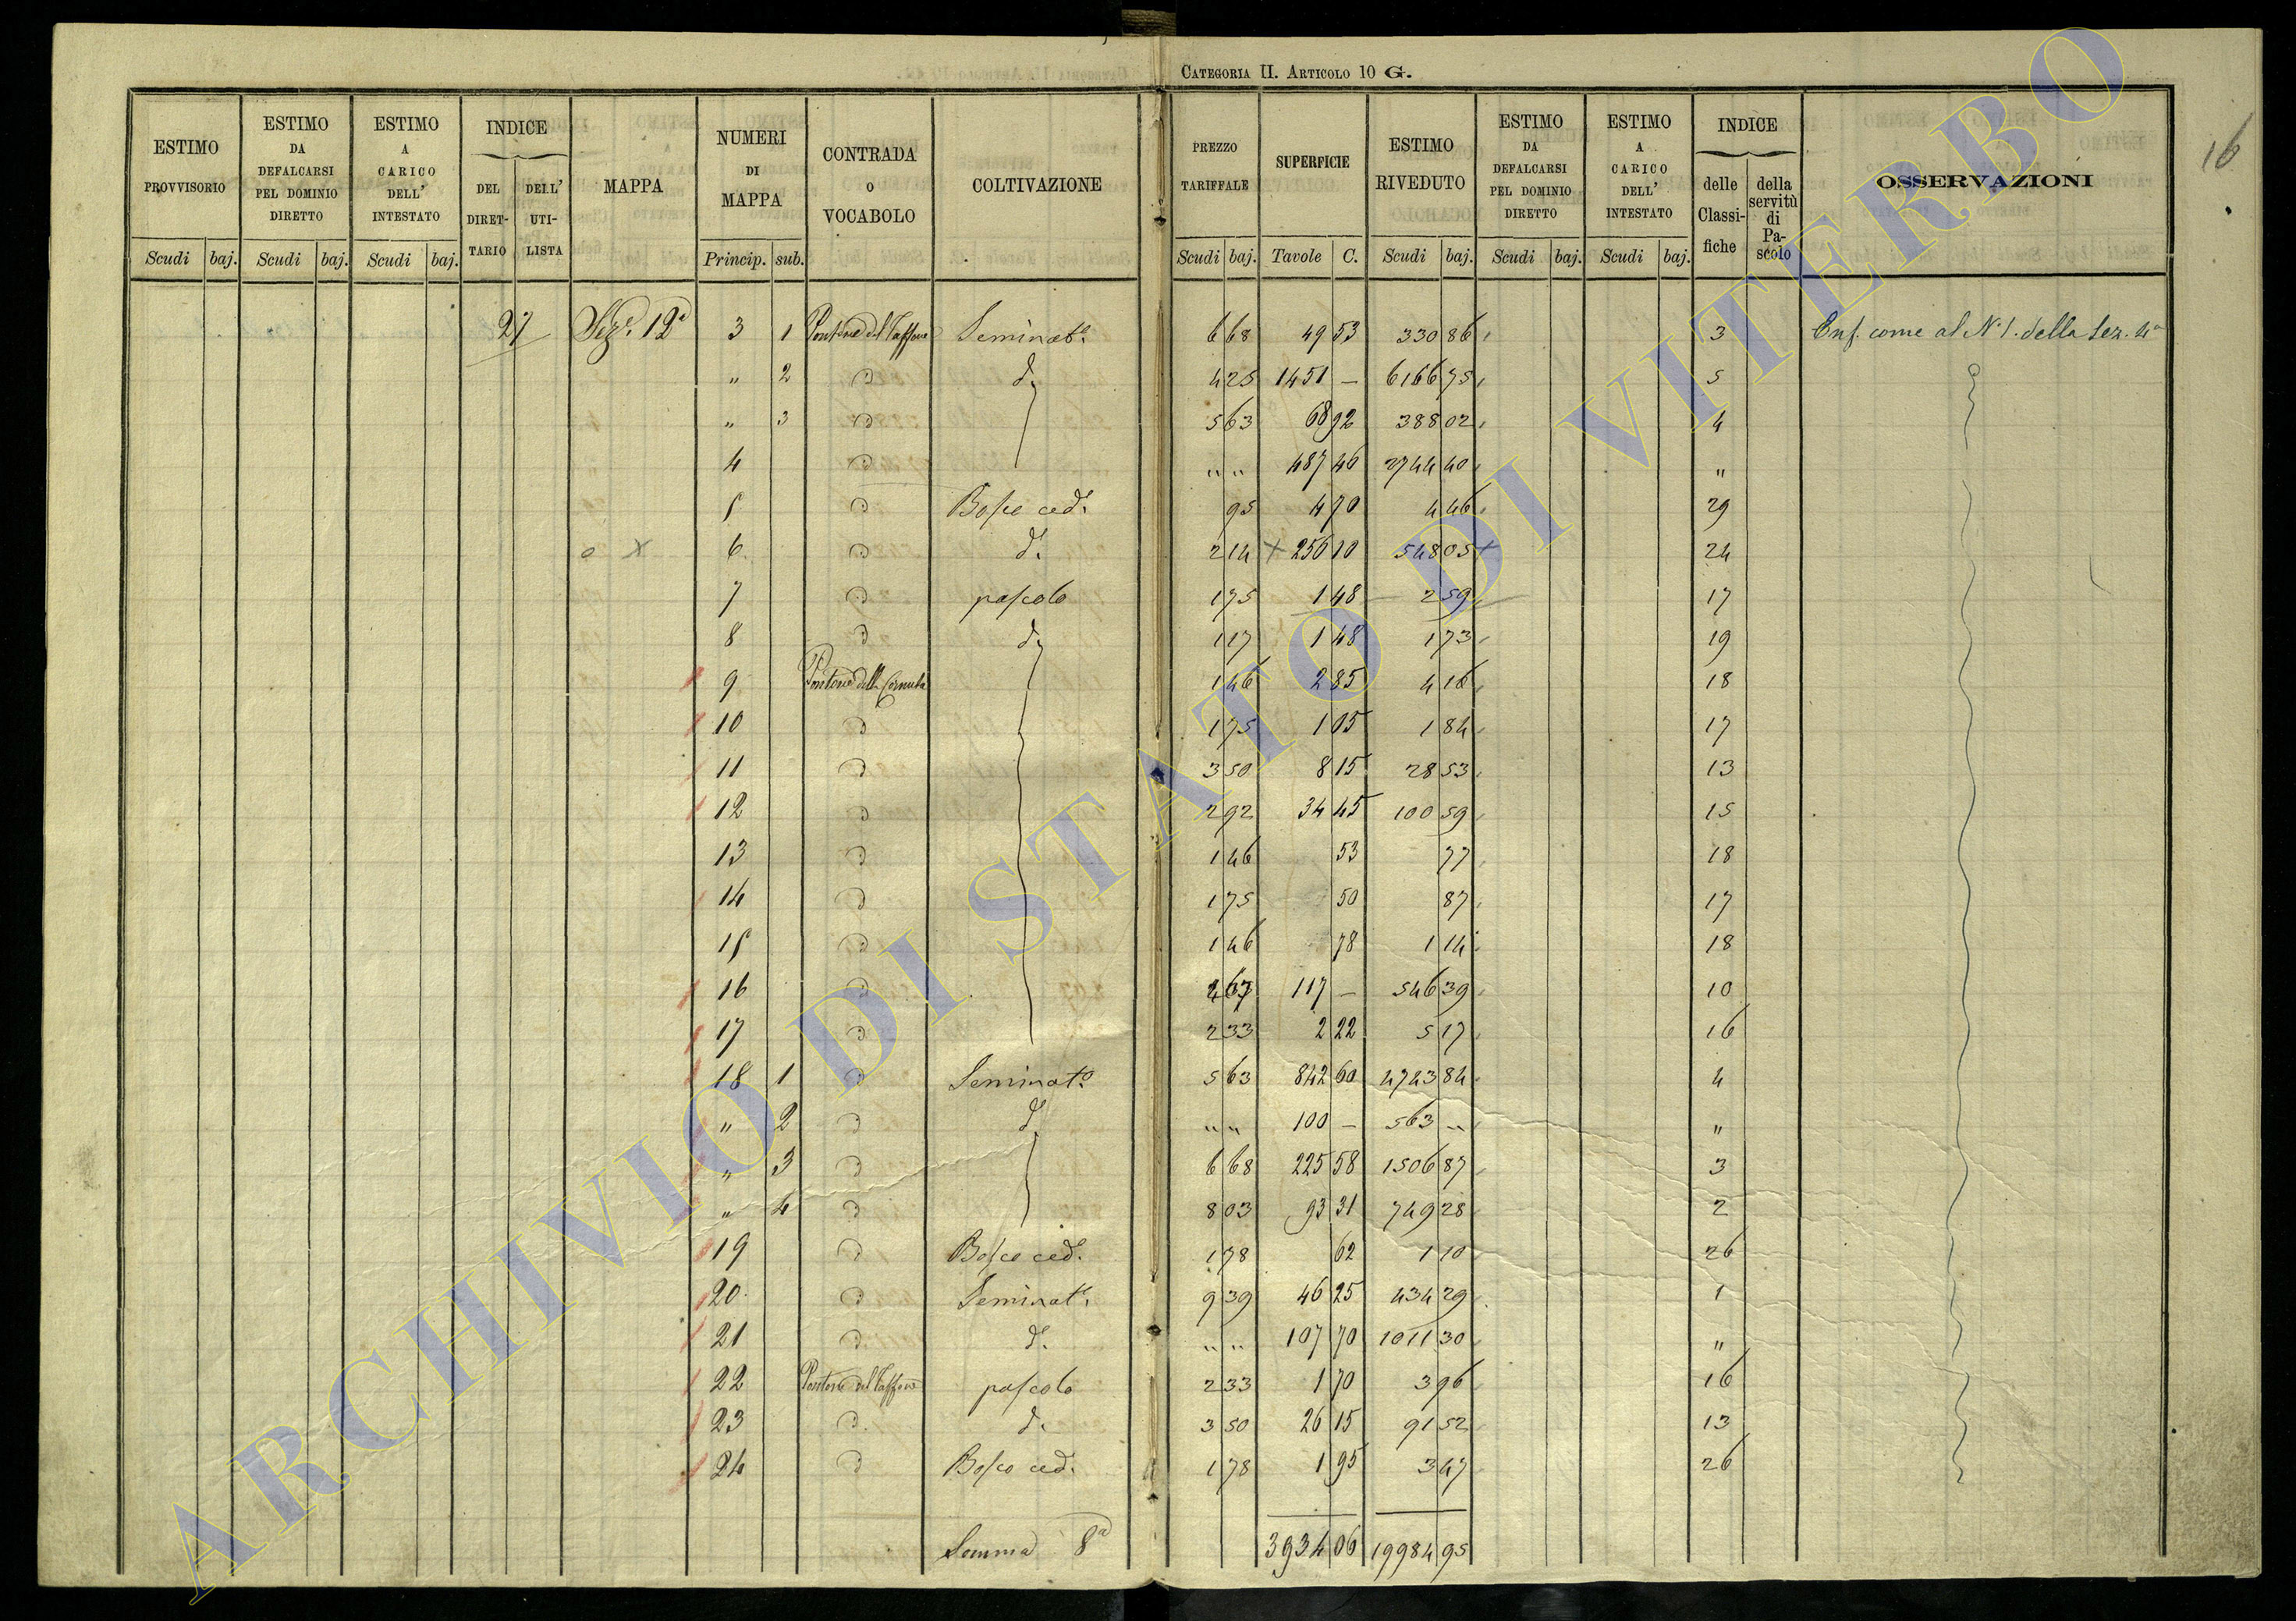 CATEGORIA II. ARTICOLO 10 G.
16
ESTIMO PROVVISORIO | ESTIMO DA DEFALCARSI PEL DOMINIO DIRETTO | ESTIMO A CARICO DELL' INTESTATO | INDICE DEL DIRET-TARIO | DELL' UTI-LISTA | MAPPA | NUMERI DI MAPPA | CONTRADA O VOCABOLO | COLTIVAZIONE | PREZZO TARIFFALE | SUPERFICIE | ESTIMO RIVEDUTO | ESTIMO DA DEFALCARSI PEL DOMINIO DIRETTO | ESTIMO A CARICO DELL' INTESTATO | INDICE delle Classi-fiche | della servitù di Pa-scolo | OSSERVAZIONI
Scudi | baj. | Scudi | baj. | Scudi | baj. | Princip. | sub. | Scudi | baj. | Tavole | C. | Scudi | baj. | Scudi | baj. | Scudi | baj.
27 | Sez.e 12a | 3 | 1 | Pontone del Taffone | Seminat.o | 6 | 68 | 49 | 53 | 330 | 86 | 3 | Enf. come al N. 1. della Sez. 4a
" | 2 | d | d.o | 4 | 25 | 1451 | — | 6166 | 75 | 5
" | 3 | d | 5 | 63 | 68 | 92 | 388 | 02 | 4
4 | d | " | " | 487 | 46 | 2744 | 40 | "
5 | d | Bosco ced.o | 95 | 4 | 70 | 4 | 46 | 29
o x | 6 | d | d.o | 2 | 14 | x 256 | 10 | 548 | 05 x | 24
7 | d | pascolo | 1 | 75 | 1 | 48 | 2 | 59 | 17
8 | d | d.o | 1 | 17 | 1 | 48 | 1 | 73 | 19
9 | Pontone della Cornuta | 1 | 46 | 2 | 85 | 4 | 16 | 18
10 | d | 1 | 75 | 1 | 05 | 1 | 84 | 17
11 | d | 3 | 50 | 8 | 15 | 28 | 53 | 13
12 | d | 2 | 92 | 34 | 45 | 100 | 59 | 15
13 | d | 1 | 46 | 53 | 77 | 18
14 | d | 1 | 75 | 50 | 87 | 17
15 | d | 1 | 46 | 78 | 1 | 14 | 18
16 | d | 4 | 67 | 117 | — | 546 | 39 | 10
17 | d | 2 | 33 | 2 | 22 | 5 | 17 | 16
18 | 1 | d | Seminat.o | 5 | 63 | 842 | 60 | 4743 | 84 | 4
" | 2 | d | d.o | " | " | 100 | — | 563 | " | "
" | 3 | d | 6 | 68 | 225 | 58 | 1506 | 87 | 3
" | 4 | d | 8 | 03 | 93 | 31 | 749 | 28 | 2
19 | d | Bosco ced.o | 1 | 78 | 62 | 1 | 10 | 26
20 | d | Seminat.o | 9 | 39 | 46 | 25 | 434 | 29 | 1
21 | d | d.o | " | " | 107 | 70 | 1011 | 30 | "
22 | Pontone del Taffone | pascolo | 2 | 33 | 1 | 70 | 3 | 96 | 16
23 | d | d.o | 3 | 50 | 26 | 15 | 91 | 52 | 13
24 | d | Bosco ced.o | 1 | 78 | 1 | 95 | 3 | 47 | 26
Somma 8a | 3934 | 06 | 19984 | 95
ARCHIVIO DI STATO DI VITERBO